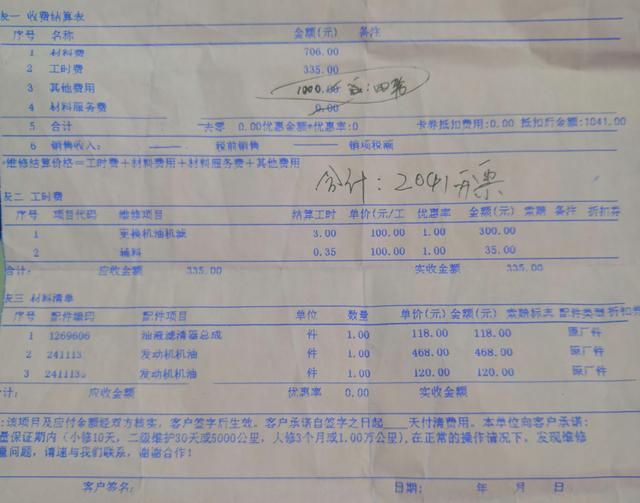 表一 收费结算表
序号 名称 金额(元) 备注
1 材料费 706.00
2 工时费 335.00
3 其他费用 1000.00
4 材料服务费 0.00
5 合计 去零 0.00优惠金额+优惠率:0 卡券抵扣费用:0.00 抵扣后金额:1041.00
6 销售收入: 税前销售 销项税额
*维修结算价格=工时费+材料费用+材料服务费+其他费用
合计:2041开票
表二 工时费
序号 项目代码 维修项目 结算工时 单价(元/工 优惠率 金额(元) 索赔 备注 折扣券
1 更换机油机滤 3.00 100.00 1.00 300.00
2 辅料 0.35 100.00 1.00 35.00
合计: 应收金额 335.00 实收金额 335.00
表三 材料清单
序号 配件编码 配件项目 单位 数量 单价(元) 金额(元) 索赔标志 配件类型 折扣券
1 1269606 油液滤清器总成 件 1.00 118.00 118.00 原厂件
2 241113 发动机机油 件 1.00 468.00 468.00 原厂件
3 241113 发动机机油 件 1.00 120.00 120.00 原厂件
计: 应收金额 优惠率 0.00 实收金额
:该项目及应付金额经双方核实, 客户签字后生效。客户承诺自签字之日起____天付清费用。本单位向客户承诺:
量保证期内(小修10天, 二级维护30天或5000公里, 大修3个月或1.00万公里), 在正常的操作情况下, 发现维修
量问题, 请速与我们联系, 谢谢合作!
客户签名: 日期: 年 月 日